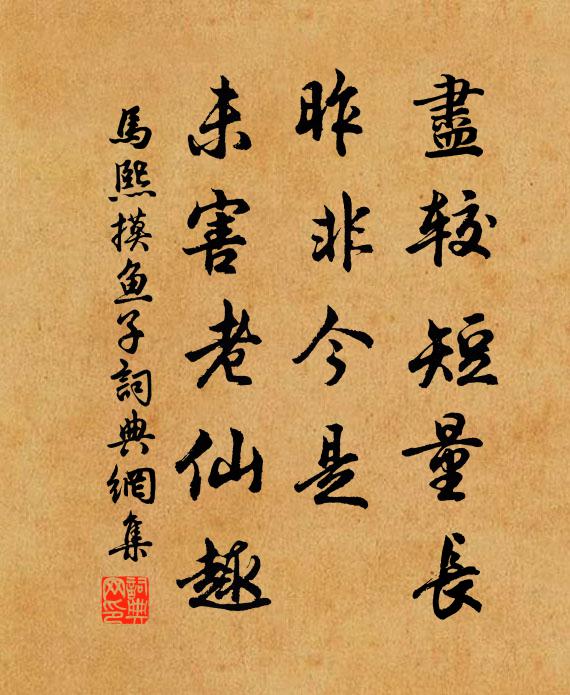 盡較短量長
昨非今是
未害老仙趣
馬熙摸鱼子詞典網集
詞典网印